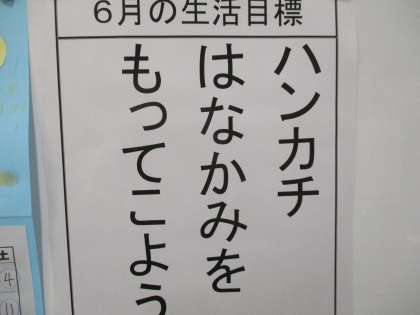 6月の生活目標
ハンカチ
はなかみを
もってこよう
土
4
11